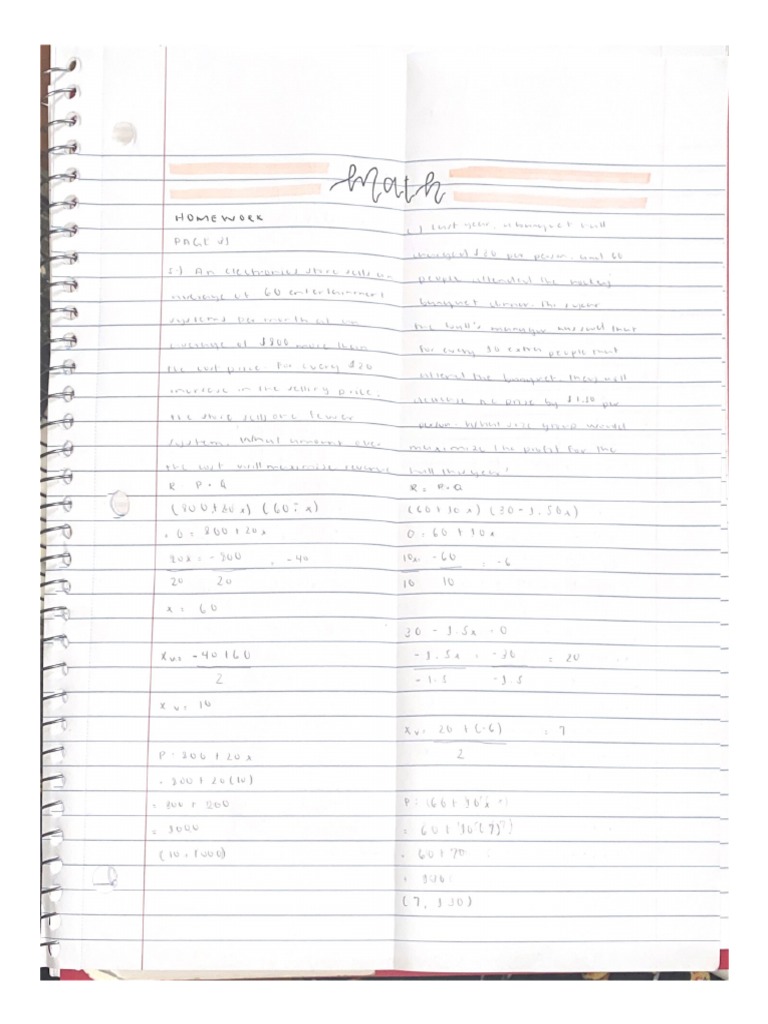 Math
HOMEWORK
PAGE
5.) An electronics store sells an
average of 60 entertainment
systems per month at an
average of $800 more than
the cost price. For every $20
increase in the selling price,
the store sells one fewer
system. What amount over
the cost will maximize revenue
R P • Q
(800+20x) (60 - x)
0 = 800 + 20x
20x = -800 = -40
20 20
x = 60
xv = -40+60
2
xv = 10
P = 800 + 20x
= 800 + 20(10)
= 800 + 200
= 1000
(10, 1000)
) Last year, a banquet hall
charged $30 per person, and 60
people attended the
banquet dinner.
the hall's manager has said that
for every 10 extra people that
attend the banquet, they will
decrease the price by $1.50 per
person. What size group would
maximize the profit for the
hall this year?
R = P•Q
(60+10x) (30-1.50x)
0 = 60 + 10x
10x = -60 = -6
10 10
30 - 1.5x = 0
-1.5x = -30 = 20
-1.5 -1.5
xv = 20 + (-6) = 7
2
P = (60+10x)
= 60+10(7)
= 60+70
= 130
(7, 130)